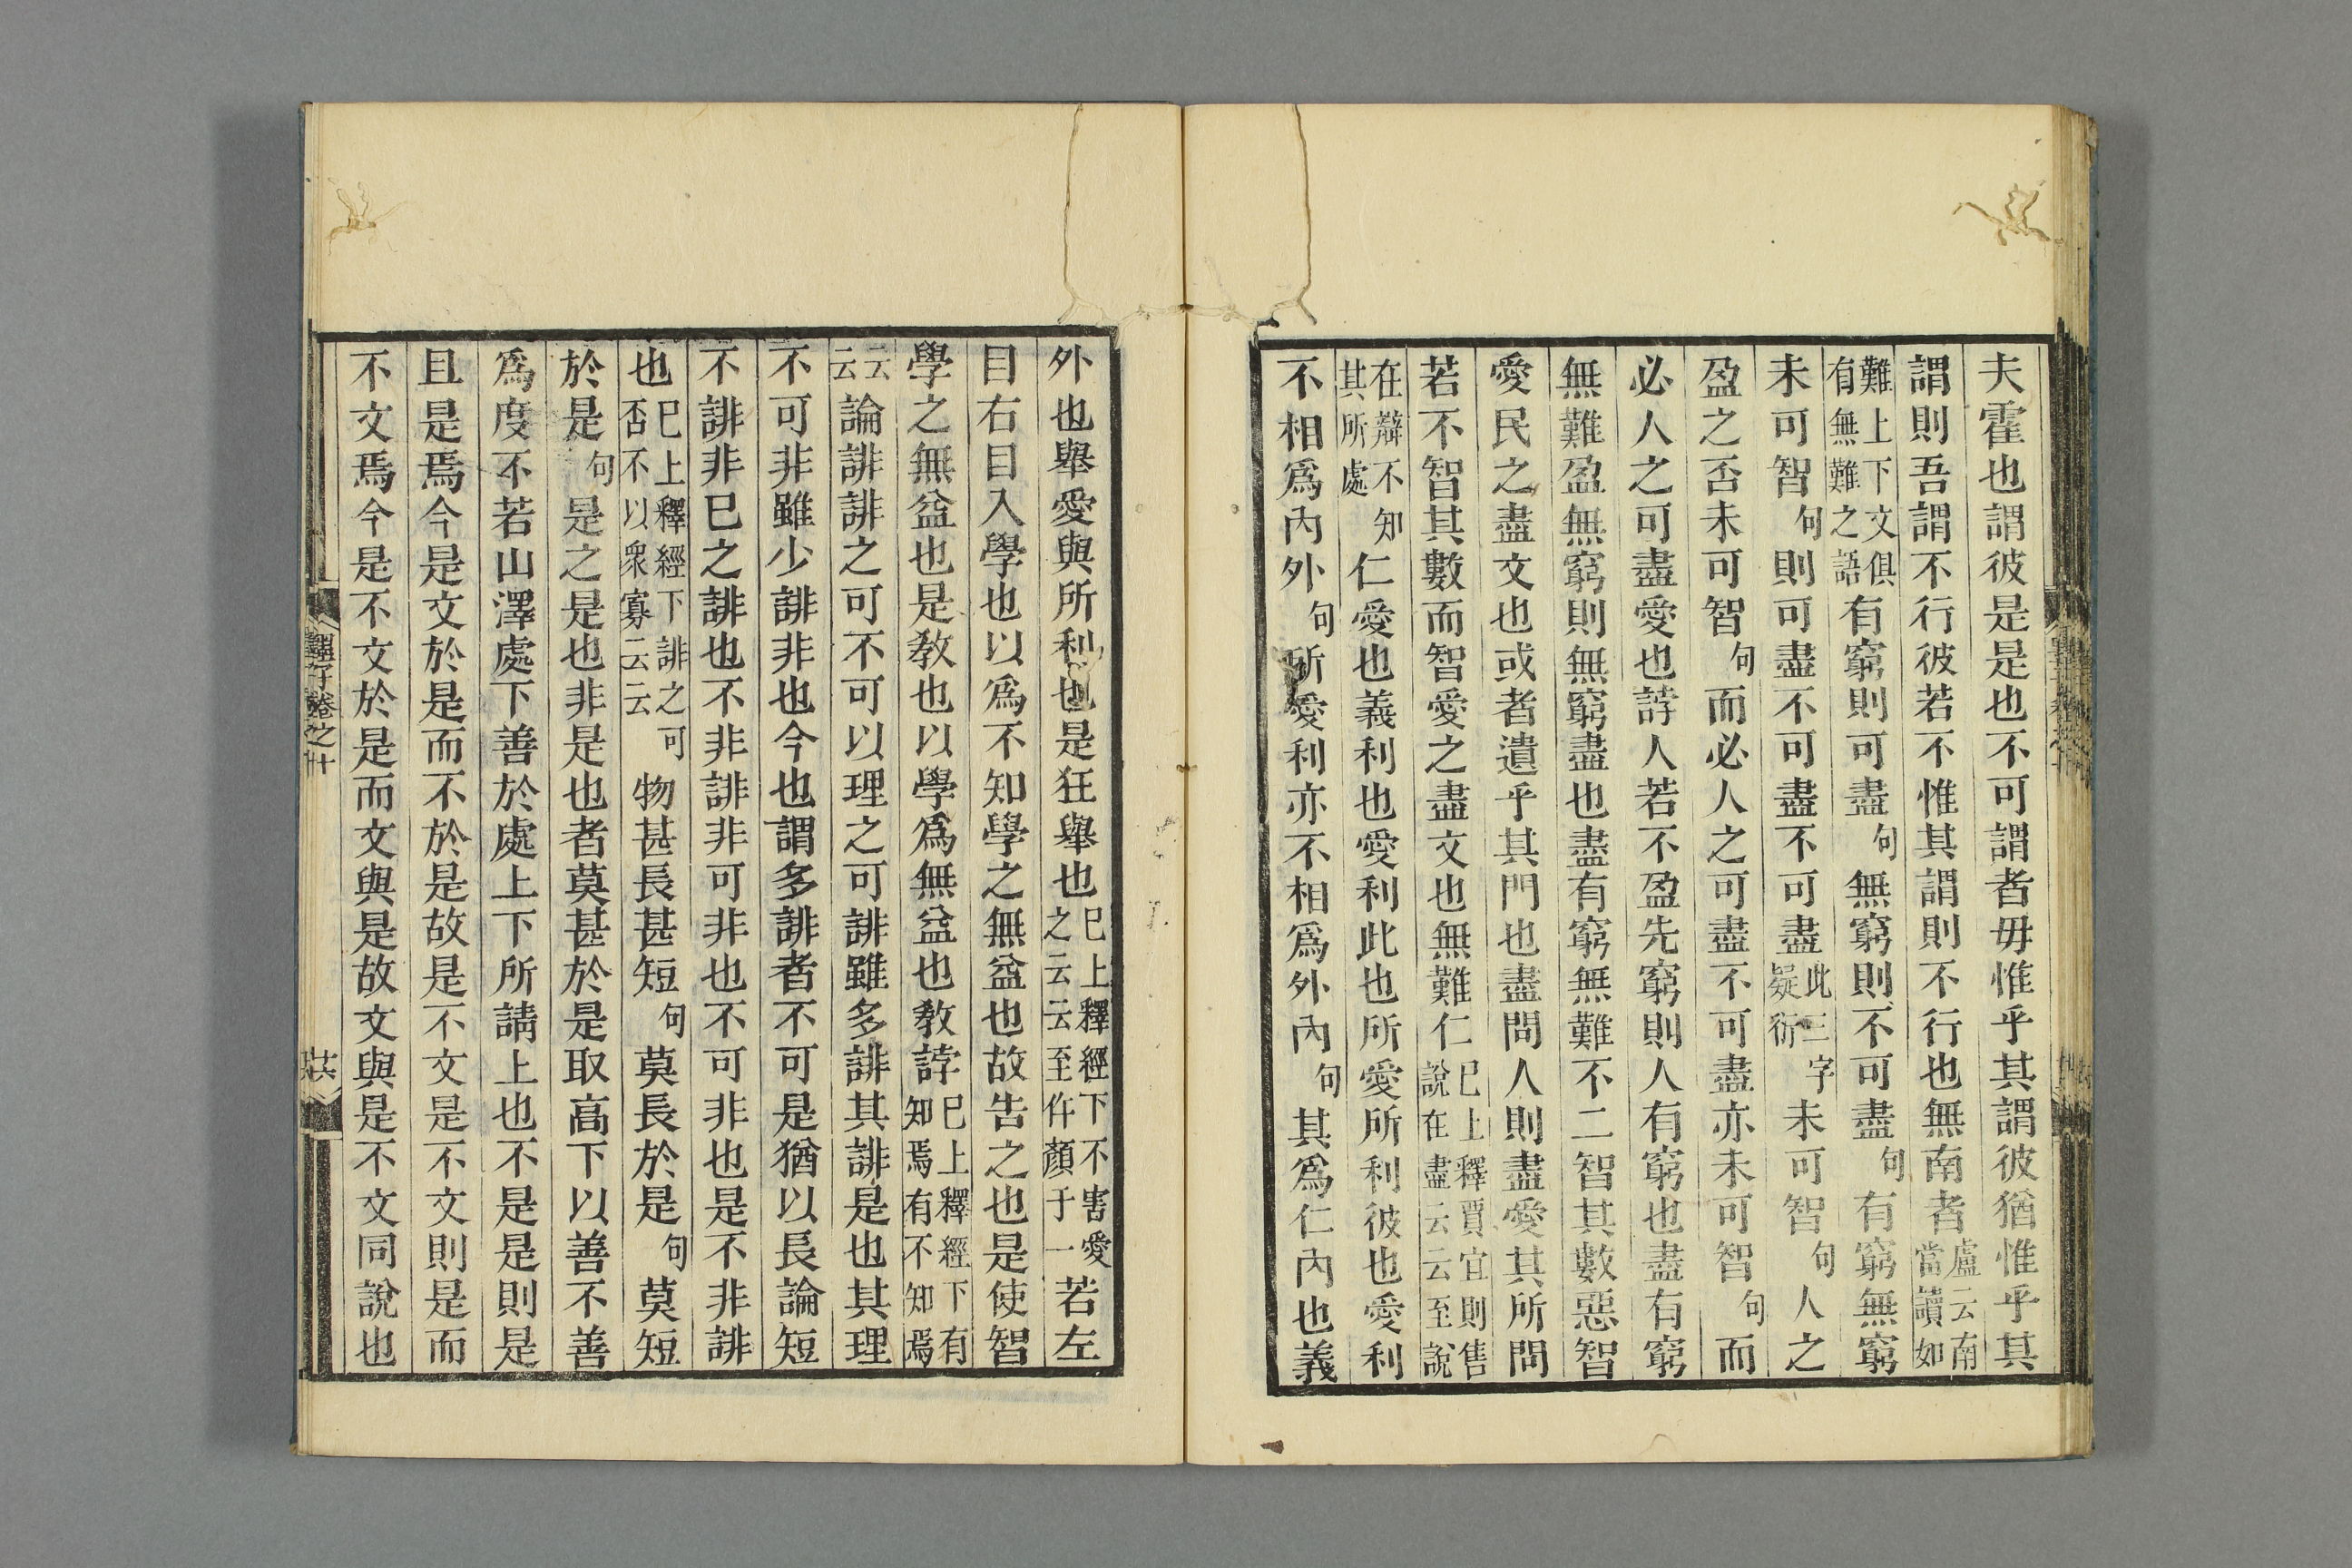 夫霍也謂彼是是也不可謂者毋惟乎其謂彼猶惟乎其
謂則吾謂不行彼若不惟其謂則不行也無南者盧云南當讀如
難上下文俱有無難之語有窮則可盡句無窮則不可盡句有窮無窮
未可智句則可盡不可盡不可盡此三字疑衍未可智句人之
盈之否未可智句而必人之可盡不可盡亦未可智句而
必人之可盡愛也誖人若不盈先窮則人有窮也盡有窮
無難盈無窮則無窮盡也盡有窮無難不二智其數惡智
愛民之盡文也或者遺乎其門也盡問人則盡愛其所問
若不智其數而智愛之盡文也無難仁巳上釋賈宜則售說在盡云云至說
在辯不知其所處仁愛也義利也愛利此也所愛所利彼也愛利
不相爲內外句所愛利亦不相爲外內句其爲仁內也義
外也舉愛與所利也是狂舉也巳上釋經下不害愛之云云至仵顏于一若左
目右目入學也以爲不知學之無益也故告之也是使智
學之無益也是教也以學爲無益也教誖巳上釋經下有知焉有不知焉
云云論誹誹之可不可以理之可誹雖多誹其誹是也其理
不可非雖少誹非也今也謂多誹者不可是猶以長論短
不誹非巳之誹也不非誹非可非也不可非也是不非誹
也巳上釋經下誹之可否不以衆寡云云物甚長甚短句莫長於是句莫短
於是句是之是也非是也者莫甚於是取高下以善不善
爲度不若山澤處下善於處上下所請上也不是是則是
且是焉今是文於是而不於是故是不文是不文則是而
不文焉今是不文於是而文與是故文與是不文同說也
墨子卷之十